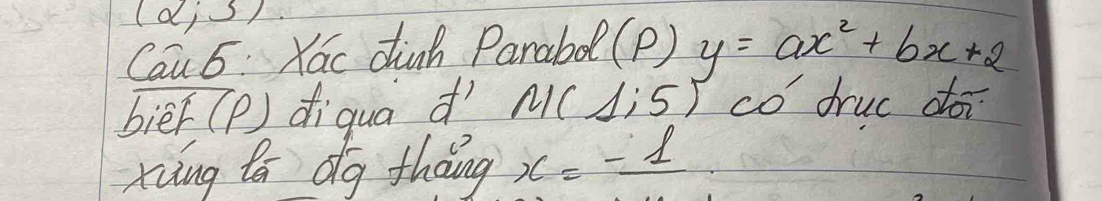 (2; 3).
Câu 5: Xác định Parabol (P) y = ax² + bx + 2
biết (P) đi qua đ' M(1; 5) có trục đối
xứng là đg thẳng x = -1